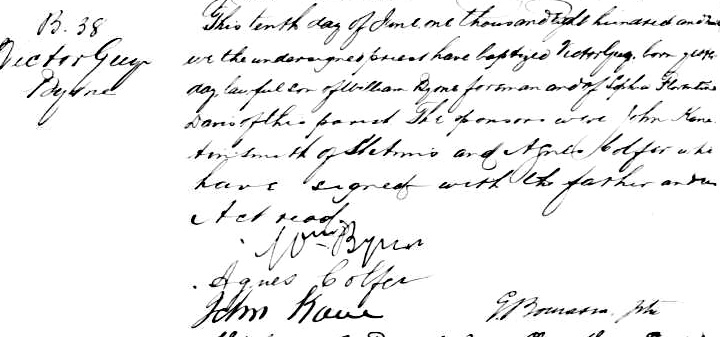 B. 38
Victor Guy
Byrne
This tenth day of June one thousand eight hundred and
we the undersigned priest have baptized Victor Guy, born yester
day, lawful son of William Byrne foreman and of Sophia Florentine
Davis of this parish The sponsors were John Kane
tinsmith of St Anns and Agnes Colfer who
have signed with the father and us
Act read.
Wm Byrne
Agnes Colfer
John Kane
G. Bourassa. ptre